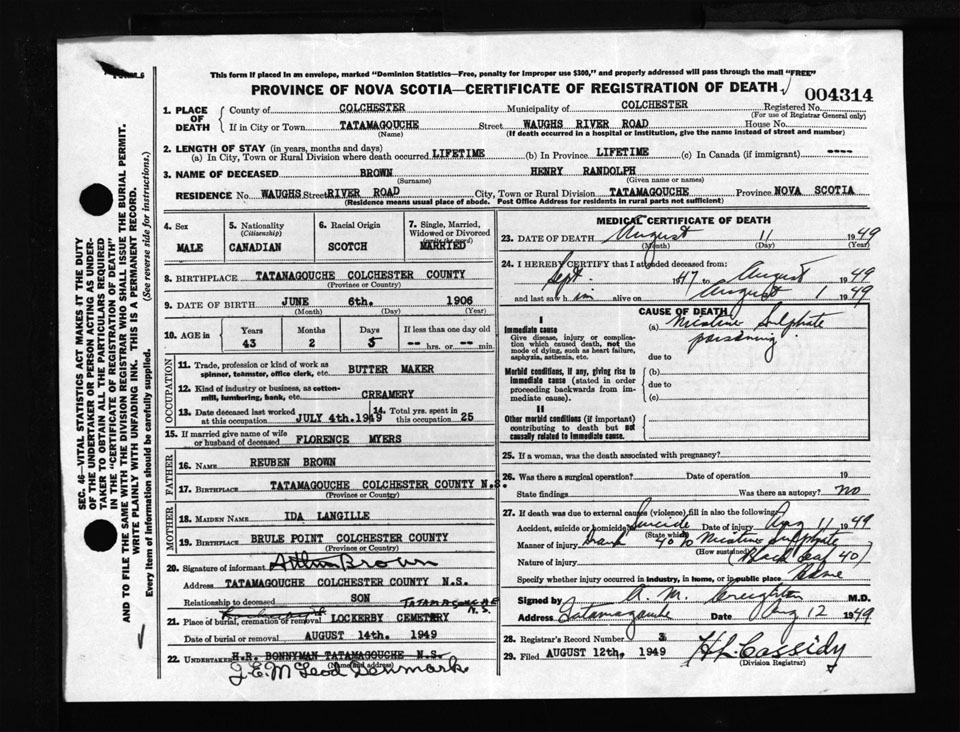 FORM 6
This form if placed in an envelope, marked "Dominion Statistics—Free, penalty for improper use $300," and properly addressed will pass through the mail "FREE"
PROVINCE OF NOVA SCOTIA—CERTIFICATE OF REGISTRATION OF DEATH
004314
1. PLACE OF DEATH
County of COLCHESTER Municipality of COLCHESTER Registered No.
(For use of Registrar General only)
If in City or Town TATAMAGOUCHE Street WAUGHS RIVER ROAD House No.
(Name) (If death occurred in a hospital or institution, give the name instead of street and number)
2. LENGTH OF STAY (in years, months and days)
(a) In City, Town or Rural Division where death occurred LIFETIME (b) In Province LIFETIME (c) In Canada (if immigrant) ----
3. NAME OF DECEASED BROWN HENRY RANDOLPH
(Surname) (Given name or names)
RESIDENCE No WAUGHS Street RIVER ROAD City, Town or Rural Division TATAMAGOUCHE Province NOVA SCOTIA
(Residence means usual place of abode. Post Office Address for residents in rural parts not sufficient)
4. Sex
MALE
5. Nationality
(Citizenship)
CANADIAN
6. Racial Origin
SCOTCH
7. Single, Married, Widowed or Divorced
(write the word)
MARRIED
8. BIRTHPLACE TATANAGOUCHE COLCHESTER COUNTY
(Province or Country)
9. DATE OF BIRTH JUNE 6th. 1906
(Month) (Day) (Year)
10. AGE in Years Months Days If less than one day old
43 2 5 -- hrs. or -- min.
OCCUPATION
11. Trade, profession or kind of work as spinner, teamster, office clerk, etc. BUTTER MAKER
12. Kind of industry or business, as cotton-mill, lumbering, bank, etc. CREAMERY
13. Date deceased last worked at this occupation JULY 4th. 1949
14. Total yrs. spent in this occupation 25
15. If married give name of wife or husband of deceased FLORENCE MYERS
FATHER
16. NAME REUBEN BROWN
17. BIRTHPLACE TATAMAGOUCHE COLCHESTER COUNTY N.S.
(Province or Country)
MOTHER
18. MAIDEN NAME IDA LANGILLE
19. BIRTHPLACE BRULE POINT COLCHESTER COUNTY
(Province or Country)
20. Signature of informant Arthur Brown
Address TATAMAGOUCHE COLCHESTER COUNTY N.S.
Relationship to deceased SON
TATAMAGOUCHE N.S.
21. Place of burial, cremation or removal LOCKERBY CEMETRY
Date of burial or removal AUGUST 14th. 1949
22. UNDERTAKER H.R. BONNYMAN TATAMAGOUCHE N.S.
(Name and address)
J.E. McLeod Denmark
MEDICAL CERTIFICATE OF DEATH
23. DATE OF DEATH August 11 1949
(Month) (Day) (Year)
24. I HEREBY CERTIFY that I attended deceased from:
Sept. 1947 to August 1949
and last saw him alive on August 1 1949
CAUSE OF DEATH
I
Immediate cause
Give disease, injury or complication which caused death, not the mode of dying, such as heart failure, asphyxia, asthenia, etc.
(a) Nicotine Sulphate poisoning
due to
Morbid conditions, if any, giving rise to immediate cause (stated in order proceeding backwards from immediate cause).
(b)
due to
(c)
II
Other morbid conditions (if important) contributing to death but not causally related to immediate cause.
25. If a woman, was the death associated with pregnancy?
26. Was there a surgical operation? Date of operation 19
State findings Was there an autopsy? No
27. If death was due to external causes (violence) fill in also the following:
Accident, suicide or homicide? Suicide Date of injury Aug 11 1949
(State which)
Manner of injury Drank 40% Nicotine sulphate
(How sustained)
Nature of injury (Black Leaf 40)
Specify whether injury occurred in industry, in home, or in public place Home
Signed by A. M. Creighton M.D.
Address Tatamagouche Date Aug 12 1949
28. Registrar's Record Number 3
29. Filed AUGUST 12th. 1949 H.L. Cassidy
(Division Registrar)
SEC. 46—VITAL STATISTICS ACT MAKES IT THE DUTY OF THE UNDERTAKER OR PERSON ACTING AS UNDERTAKER TO OBTAIN ALL THE PARTICULARS REQUIRED IN THE "CERTIFICATE OF REGISTRATION OF DEATH" AND TO FILE THE SAME WITH THE DIVISION REGISTRAR WHO SHALL ISSUE THE BURIAL PERMIT.
WRITE PLAINLY WITH UNFADING INK. THIS IS A PERMANENT RECORD.
Every item of information should be carefully supplied. (See reverse side for instructions.)